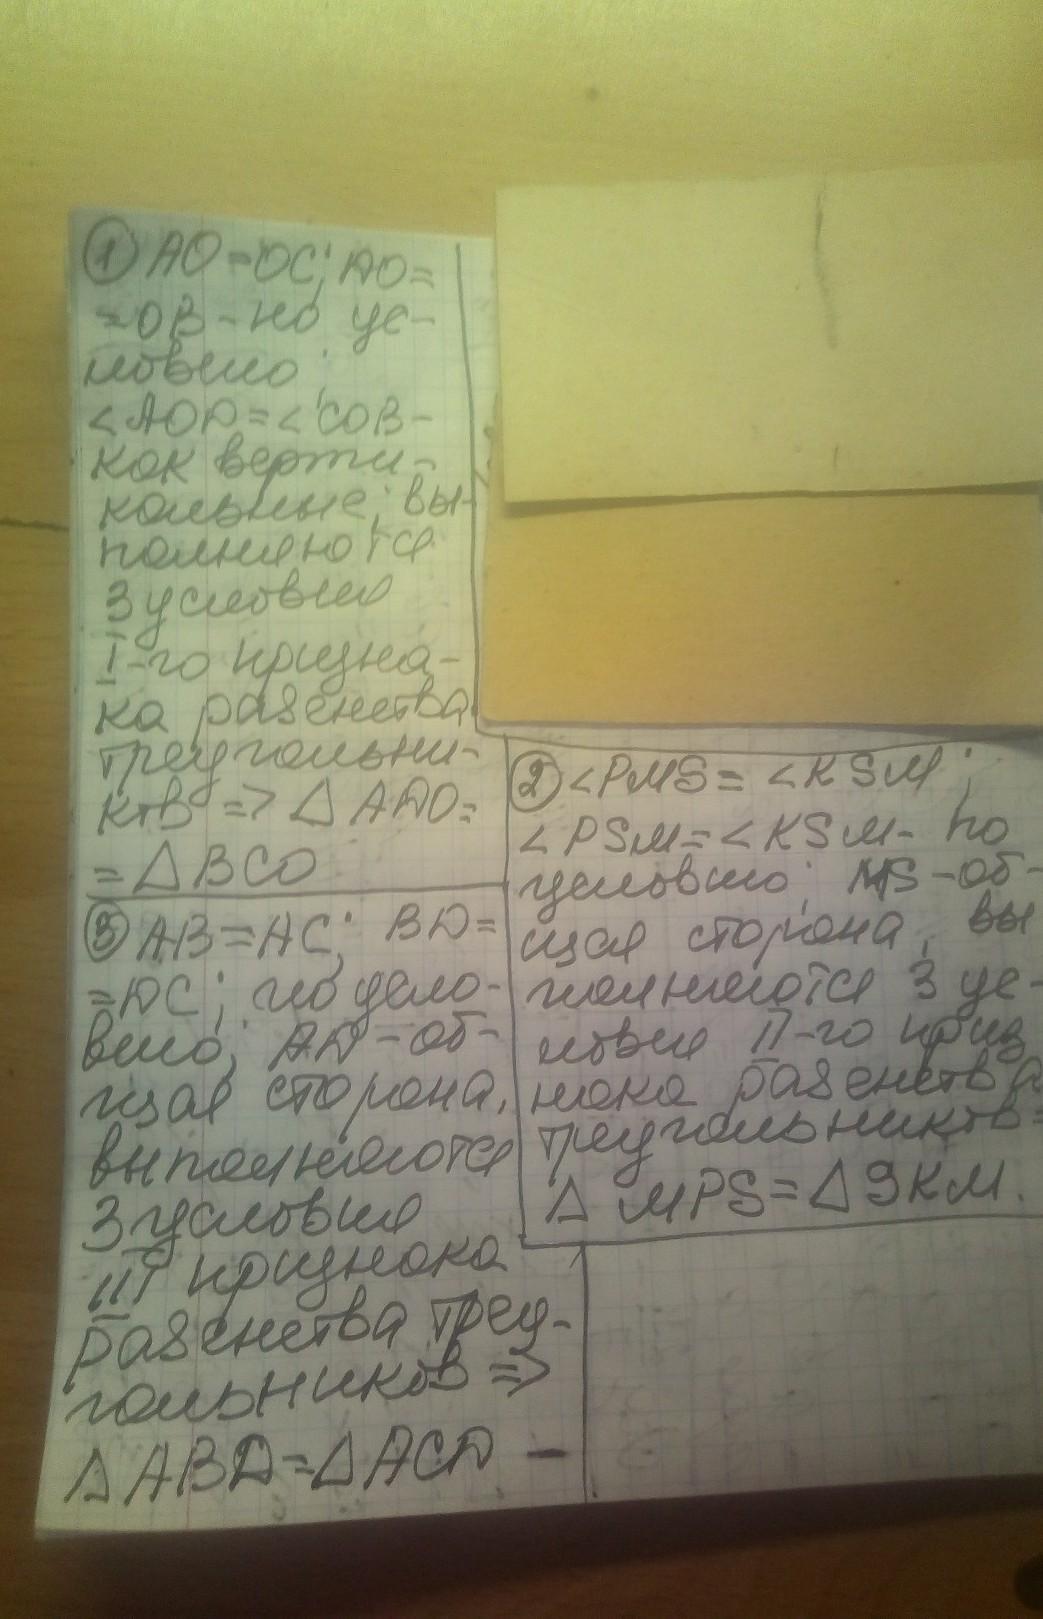 ① AO=OC; AO=
=OB - по ус-
ловию;
<AOD=<COB-
как верти-
кальные; вы-
полняются
3 условия
I-го призна-
ка равенства
треугольни-
ков => △ ADO=
=△BCO
② <PMS= <KSM;
<PSM=<KSM- по
условию; MS-об-
щая сторона, вы
полняются 3 ус-
ловия II-го приз
нака равенства
треугольников=
△ MPS=△SKM.
③ AB=AC; BD=
=DC; по усло-
вию; AD-об-
щая сторона,
выполняются
3 условия
III признака
равенства треу-
гольников =>
△ABD=△ACD -